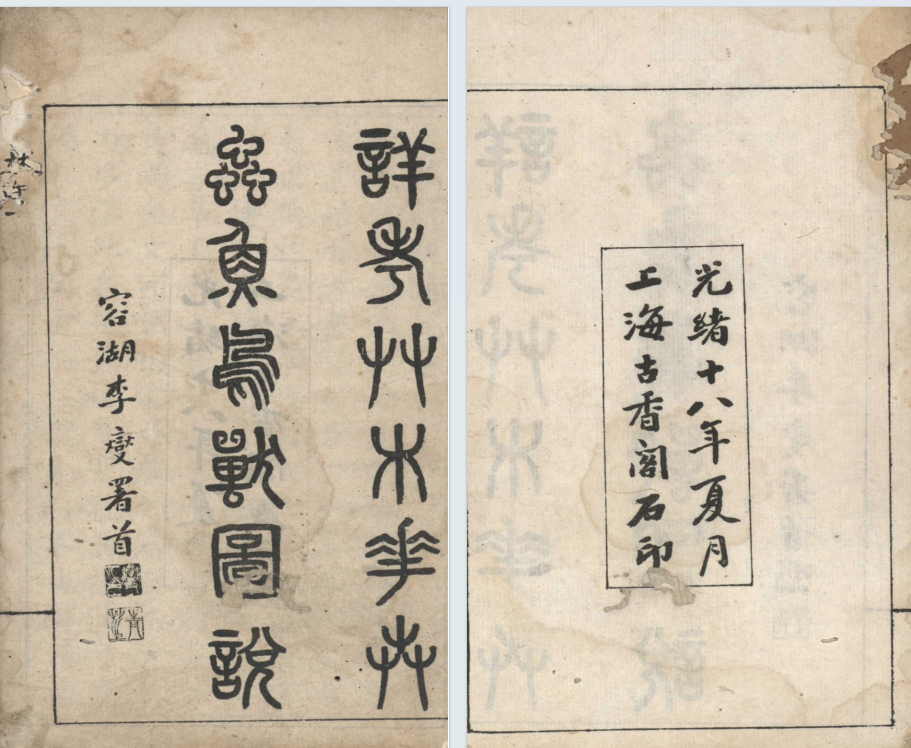 詳考艸木華卉
蟲魚鳥獸圖說
容湖李燮署首
光緒十八年夏月
上海古香閣石印